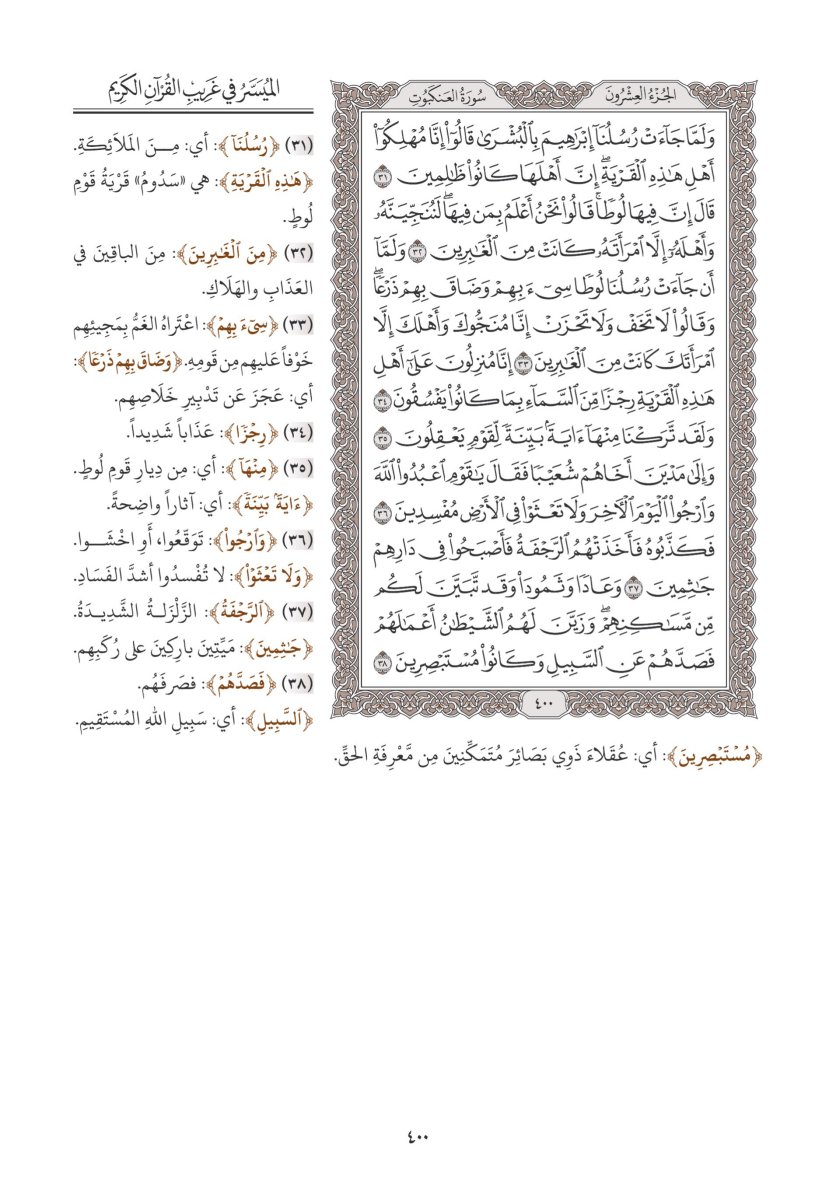 الجُزْءُ العِشْرُونَ
سُورَةُ العَنكَبُوتِ
وَلَمَّا جَآءَتْ رُسُلُنَآ إِبْرَٰهِيمَ بِٱلْبُشْرَىٰ قَالُوٓا۟ إِنَّا مُهْلِكُوٓا۟
أَهْلِ هَٰذِهِ ٱلْقَرْيَةِ ۖ إِنَّ أَهْلَهَا كَانُوا۟ ظَٰلِمِينَ ٣١
قَالَ إِنَّ فِيهَا لُوطًا ۚ قَالُوا۟ نَحْنُ أَعْلَمُ بِمَن فِيهَا ۖ لَنُنَجِّيَنَّهُۥ
وَأَهْلَهُۥٓ إِلَّا ٱمْرَأَتَهُۥ كَانَتْ مِنَ ٱلْغَٰبِرِينَ ٣٢ وَلَمَّآ
أَن جَآءَتْ رُسُلُنَا لُوطًا سِىٓءَ بِهِمْ وَضَاقَ بِهِمْ ذَرْعًا ۖ
وَقَالُوا۟ لَا تَخَفْ وَلَا تَحْزَنْ إِنَّا مُنَجُّوكَ وَأَهْلَكَ إِلَّا
ٱمْرَأَتَكَ كَانَتْ مِنَ ٱلْغَٰبِرِينَ ٣٣ إِنَّا مُنزِلُونَ عَلَىٰٓ أَهْلِ
هَٰذِهِ ٱلْقَرْيَةِ رِجْزًا مِّنَ ٱلسَّمَآءِ بِمَا كَانُوا۟ يَفْسُقُونَ ٣٤
وَلَقَد تَّرَكْنَا مِنْهَآ ءَايَةًۢ بَيِّنَةً لِّقَوْمٍ يَعْقِلُونَ ٣٥
وَإِلَىٰ مَدْيَنَ أَخَاهُمْ شُعَيْبًا فَقَالَ يَٰقَوْمِ ٱعْبُدُوا۟ ٱللَّهَ
وَٱرْجُوا۟ ٱلْيَوْمَ ٱلْأَخِرَ وَلَا تَعْثَوْا۟ فِى ٱلْأَرْضِ مُفْسِدِينَ ٣٦
فَكَذَّبُوهُ فَأَخَذَتْهُمُ ٱلرَّجْفَةُ فَأَصْبَحُوا۟ فِى دَارِهِمْ
جَٰثِمِينَ ٣٧ وَعَادًا وَثَمُودَا۟ وَقَد تَّبَيَّنَ لَكُم
مِّن مَّسَٰكِنِهِمْ ۖ وَزَيَّنَ لَهُمُ ٱلشَّيْطَٰنُ أَعْمَٰلَهُمْ
فَصَدَّهُمْ عَنِ ٱلسَّبِيلِ وَكَانُوا۟ مُسْتَبْصِرِينَ ٣٨
٤٠٠
المُيَسَّرُ في غَرِيبِ القُرْآنِ الكَرِيم
(٣١) ﴿رُسُلُنَآ﴾: أي: مِنَ المَلَائِكَةِ.
﴿هَٰذِهِ ٱلْقَرْيَةِ﴾: هي «سَدُومُ» قَرْيَةُ قَوْمِ
لُوطٍ.
(٣٢) ﴿مِنَ ٱلْغَٰبِرِينَ﴾: مِنَ الباقِينَ في
العَذَابِ والهَلَاكِ.
(٣٣) ﴿سِىٓءَ بِهِمْ﴾: اعْتَراهُ الغَمُّ بِمَجِيئِهِم
خَوْفاً عَليهِم مِن قَومِهِ. ﴿وَضَاقَ بِهِمْ ذَرْعًا﴾:
أي: عَجَزَ عَن تَدْبِيرِ خَلَاصِهِم.
(٣٤) ﴿رِجْزًا﴾: عَذَاباً شَدِيداً.
(٣٥) ﴿مِنْهَآ﴾: أي: مِن دِيارِ قَومِ لُوطٍ.
﴿ءَايَةًۢ بَيِّنَةً﴾: أي: آثاراً واضِحةً.
(٣٦) ﴿وَٱرْجُوا۟﴾: تَوَقَّعُوا، أَوِ اخْشَوا.
﴿وَلَا تَعْثَوْا۟﴾: لا تُفْسِدُوا أشدَّ الفَسَادِ.
(٣٧) ﴿ٱلرَّجْفَةُ﴾: الزَّلْزَلةُ الشَّدِيدَةُ.
﴿جَٰثِمِينَ﴾: مَيِّتِينَ بارِكِينَ على رُكَبِهِم.
(٣٨) ﴿فَصَدَّهُمْ﴾: فصَرفَهُم.
﴿ٱلسَّبِيلِ﴾: أي: سَبِيلِ اللهِ المُسْتَقِيمِ.
﴿مُسْتَبْصِرِينَ﴾: أي: عُقَلاءَ ذَوِي بَصَائِرَ مُتَمَكِّنِينَ مِن مَّعْرِفَةِ الحقِّ.
٤٠٠